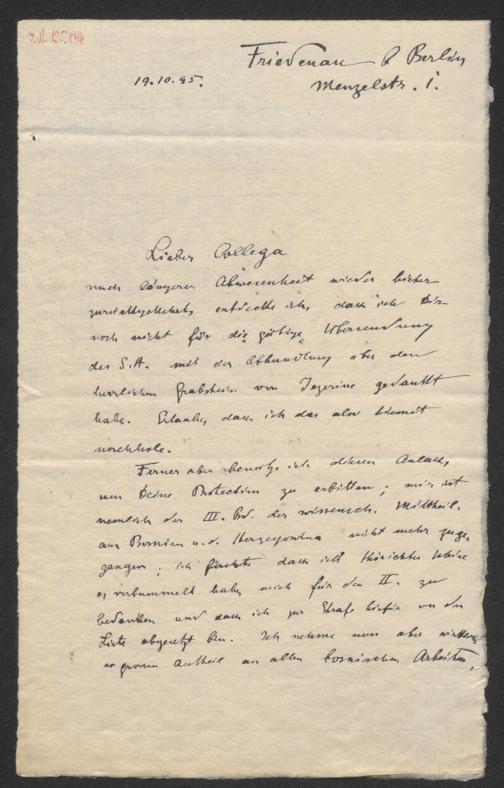 Friedenau b Berlin
19.10.95. Menzelstr. 1.
Lieber College
nach längerer Abwesenheit wieder hieher
zurückgekehrt, entdeckte ich, dass ich Dir
noch nicht für die gütige Übersendung
des S.A. mit der Abhandlung über den
herrlichen Grabstein von Jezerine gedankt
habe. Erlaube, dass ich das also hiemit
nachhole.
Ferner aber benutze ich diesen Anlass,
um Deine Protection zu erbitten; mir ist
nemlich der III. Bd. der wissensch. Mittheil.
aus Bosnien u. d. Herzegowina nicht mehr zuge-
gangen; ich fürchte dass ich
es verbummelt habe, mich für den II. zu
bedanken und dass ich zur Strafe hiefür von der
Liste abgesetzt bin. Ich nehme nun aber
so grossen Antheil an allen bosnischen Arbeiten,